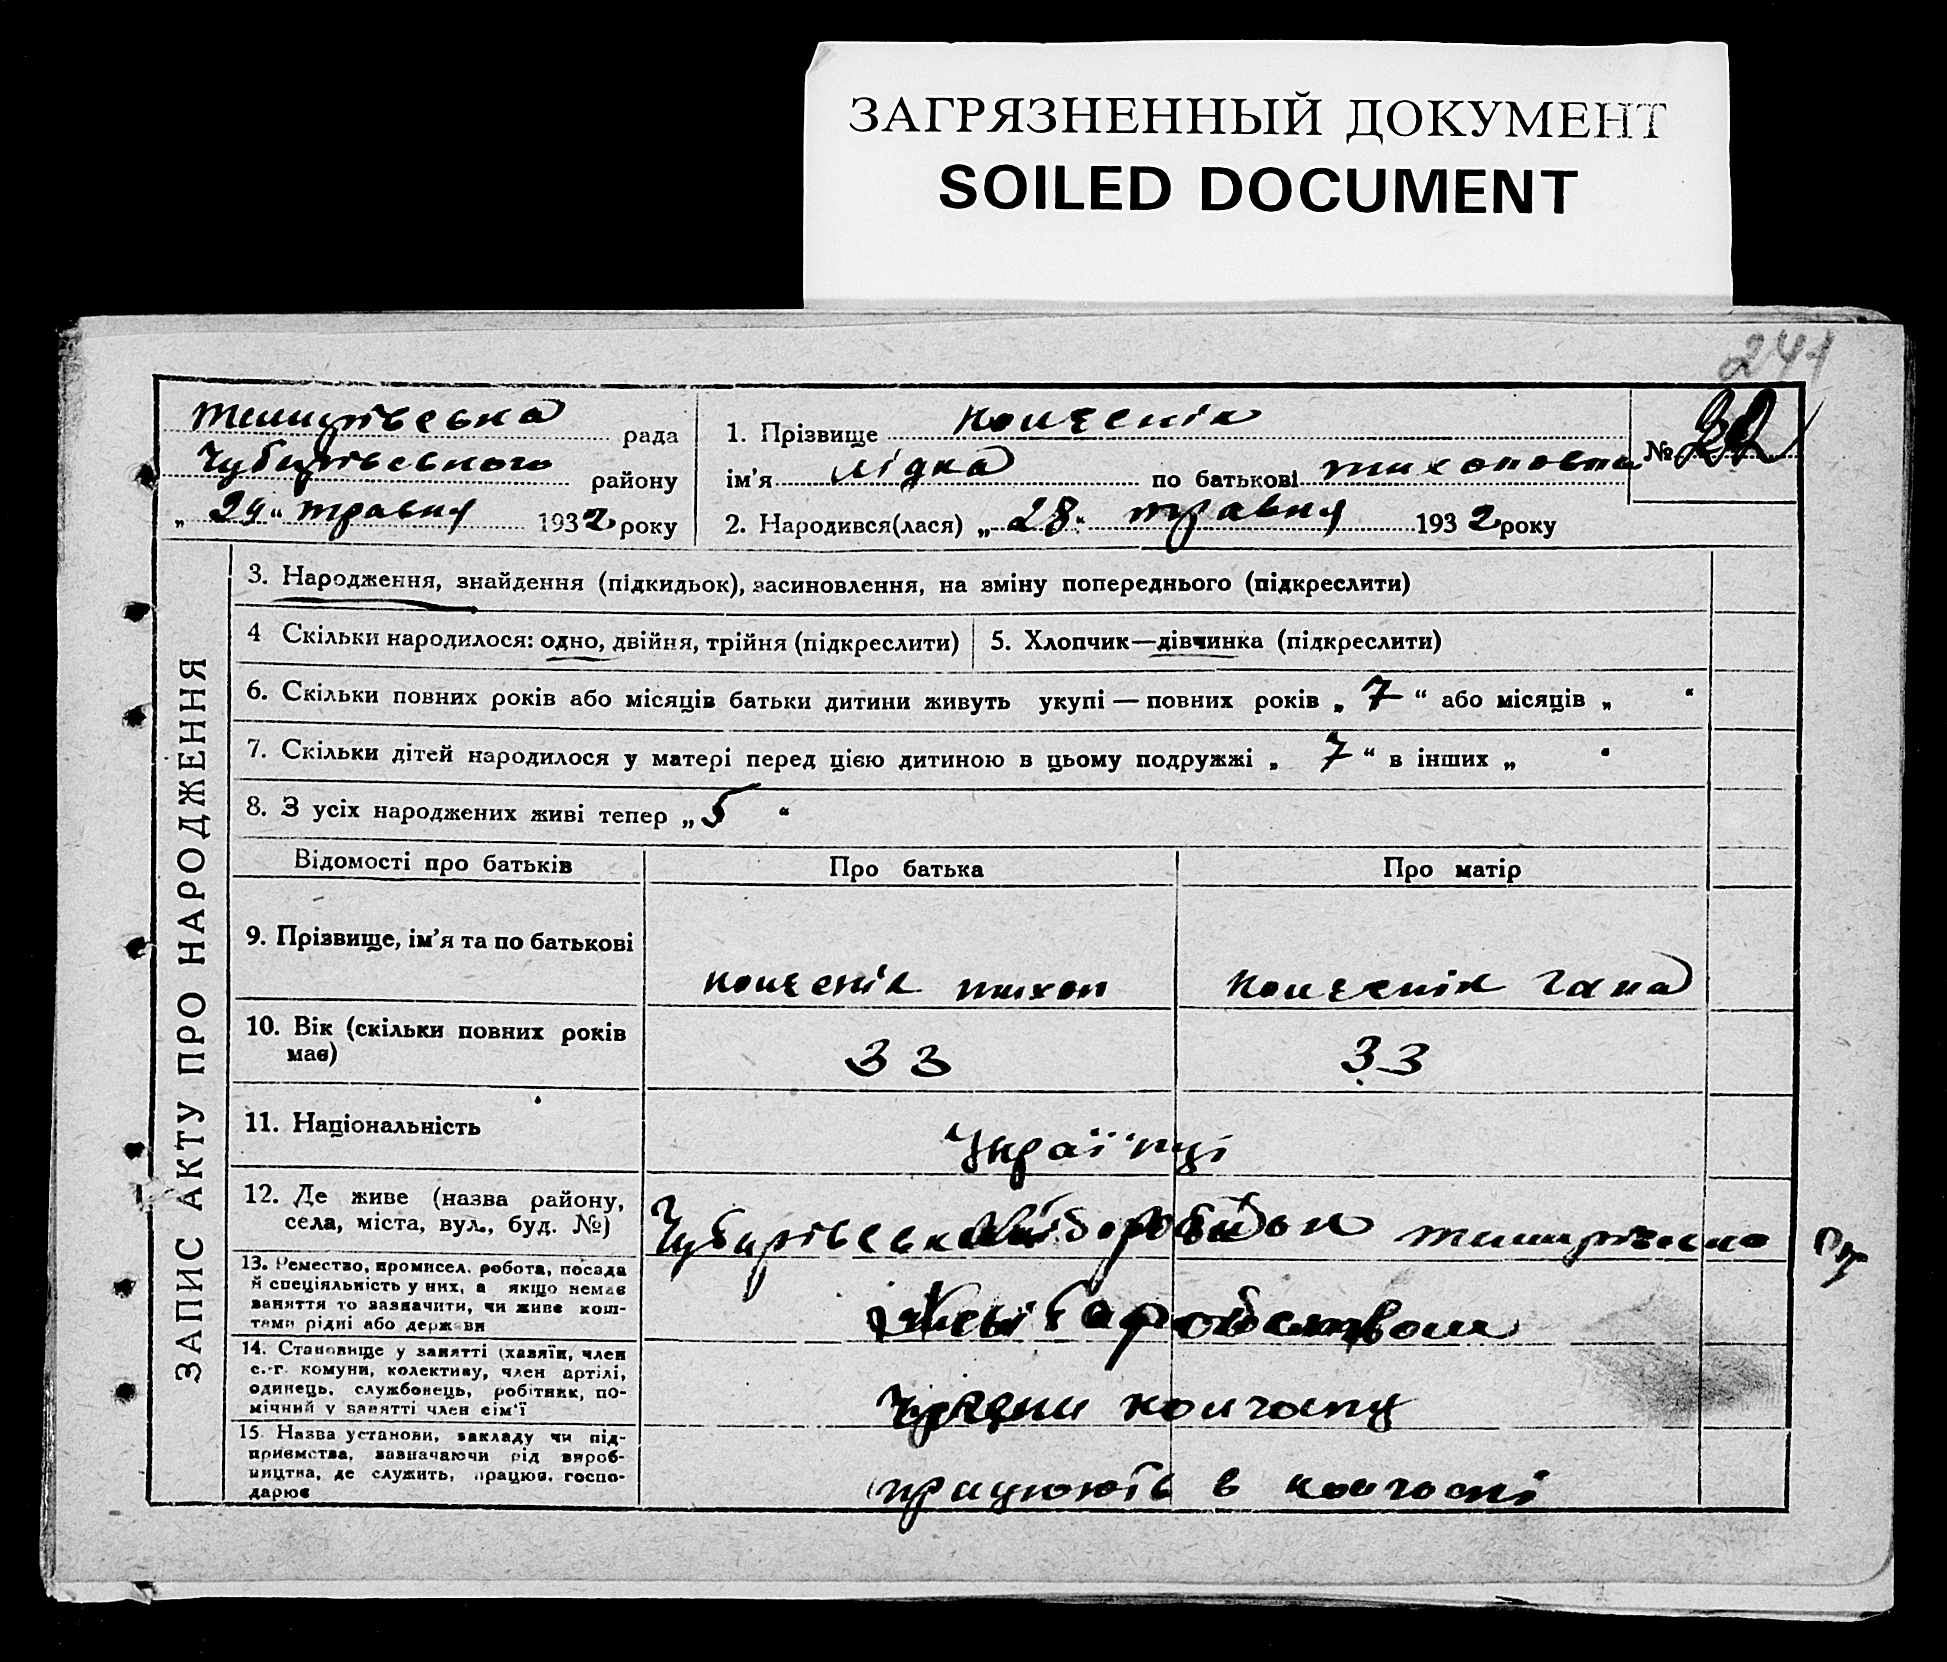 ЗАГРЯЗНЕННЫЙ ДОКУМЕНТ
SOILED DOCUMENT
241
рада
Чубарівського району
„ 29 “ травня 1932 року
1. Прізвище
ім’я Лідка по батькові Тихоновна
2. Народився(лася) „ 28 “ травня 1932 року
№
ЗАПИС АКТУ ПРО НАРОДЖЕННЯ
3. Народження, знайдення (підкидьок), засиновлення, на зміну попереднього (підкреслити)
4 Скільки народилося: одно, двійня, трійня (підкреслити)
5. Хлопчик—дівчинка (підкреслити)
6. Скільки повних років або місяців батьки дитини живуть укупі — повних років „ 7 “ або місяців „ “
7. Скільки дітей народилося у матері перед цією дитиною в цьому подружжі „ 7 “ в інших „ “
8. З усіх народжених живі тепер „ 5 “
Відомості про батьків
Про батька
Про матір
9. Прізвище, ім’я та по батькові
Тихон
Гана
10. Вік (скільки повних років
має)
33
33
11. Національність
Українці
12. Де живе (назва району,
села, міста, вул., буд. №)
13. Ремество, промисел, робота, посада
й спеціяльність у них, а якщо немає
заняття то зазначити, чи живе кош-
тами рідні або держави
14. Становище у занятті (хазяїн, член
с.-г. комуни, колективу, член артілі,
одинець, службовець, робітник, по-
мічний у занятті член сім’ї
колгоспу
15. Назва установи, закладу чи під-
приємства, зазначаючи рід вироб-
ництва, де служить, працює, госпо-
дарює
працюють в колгоспі